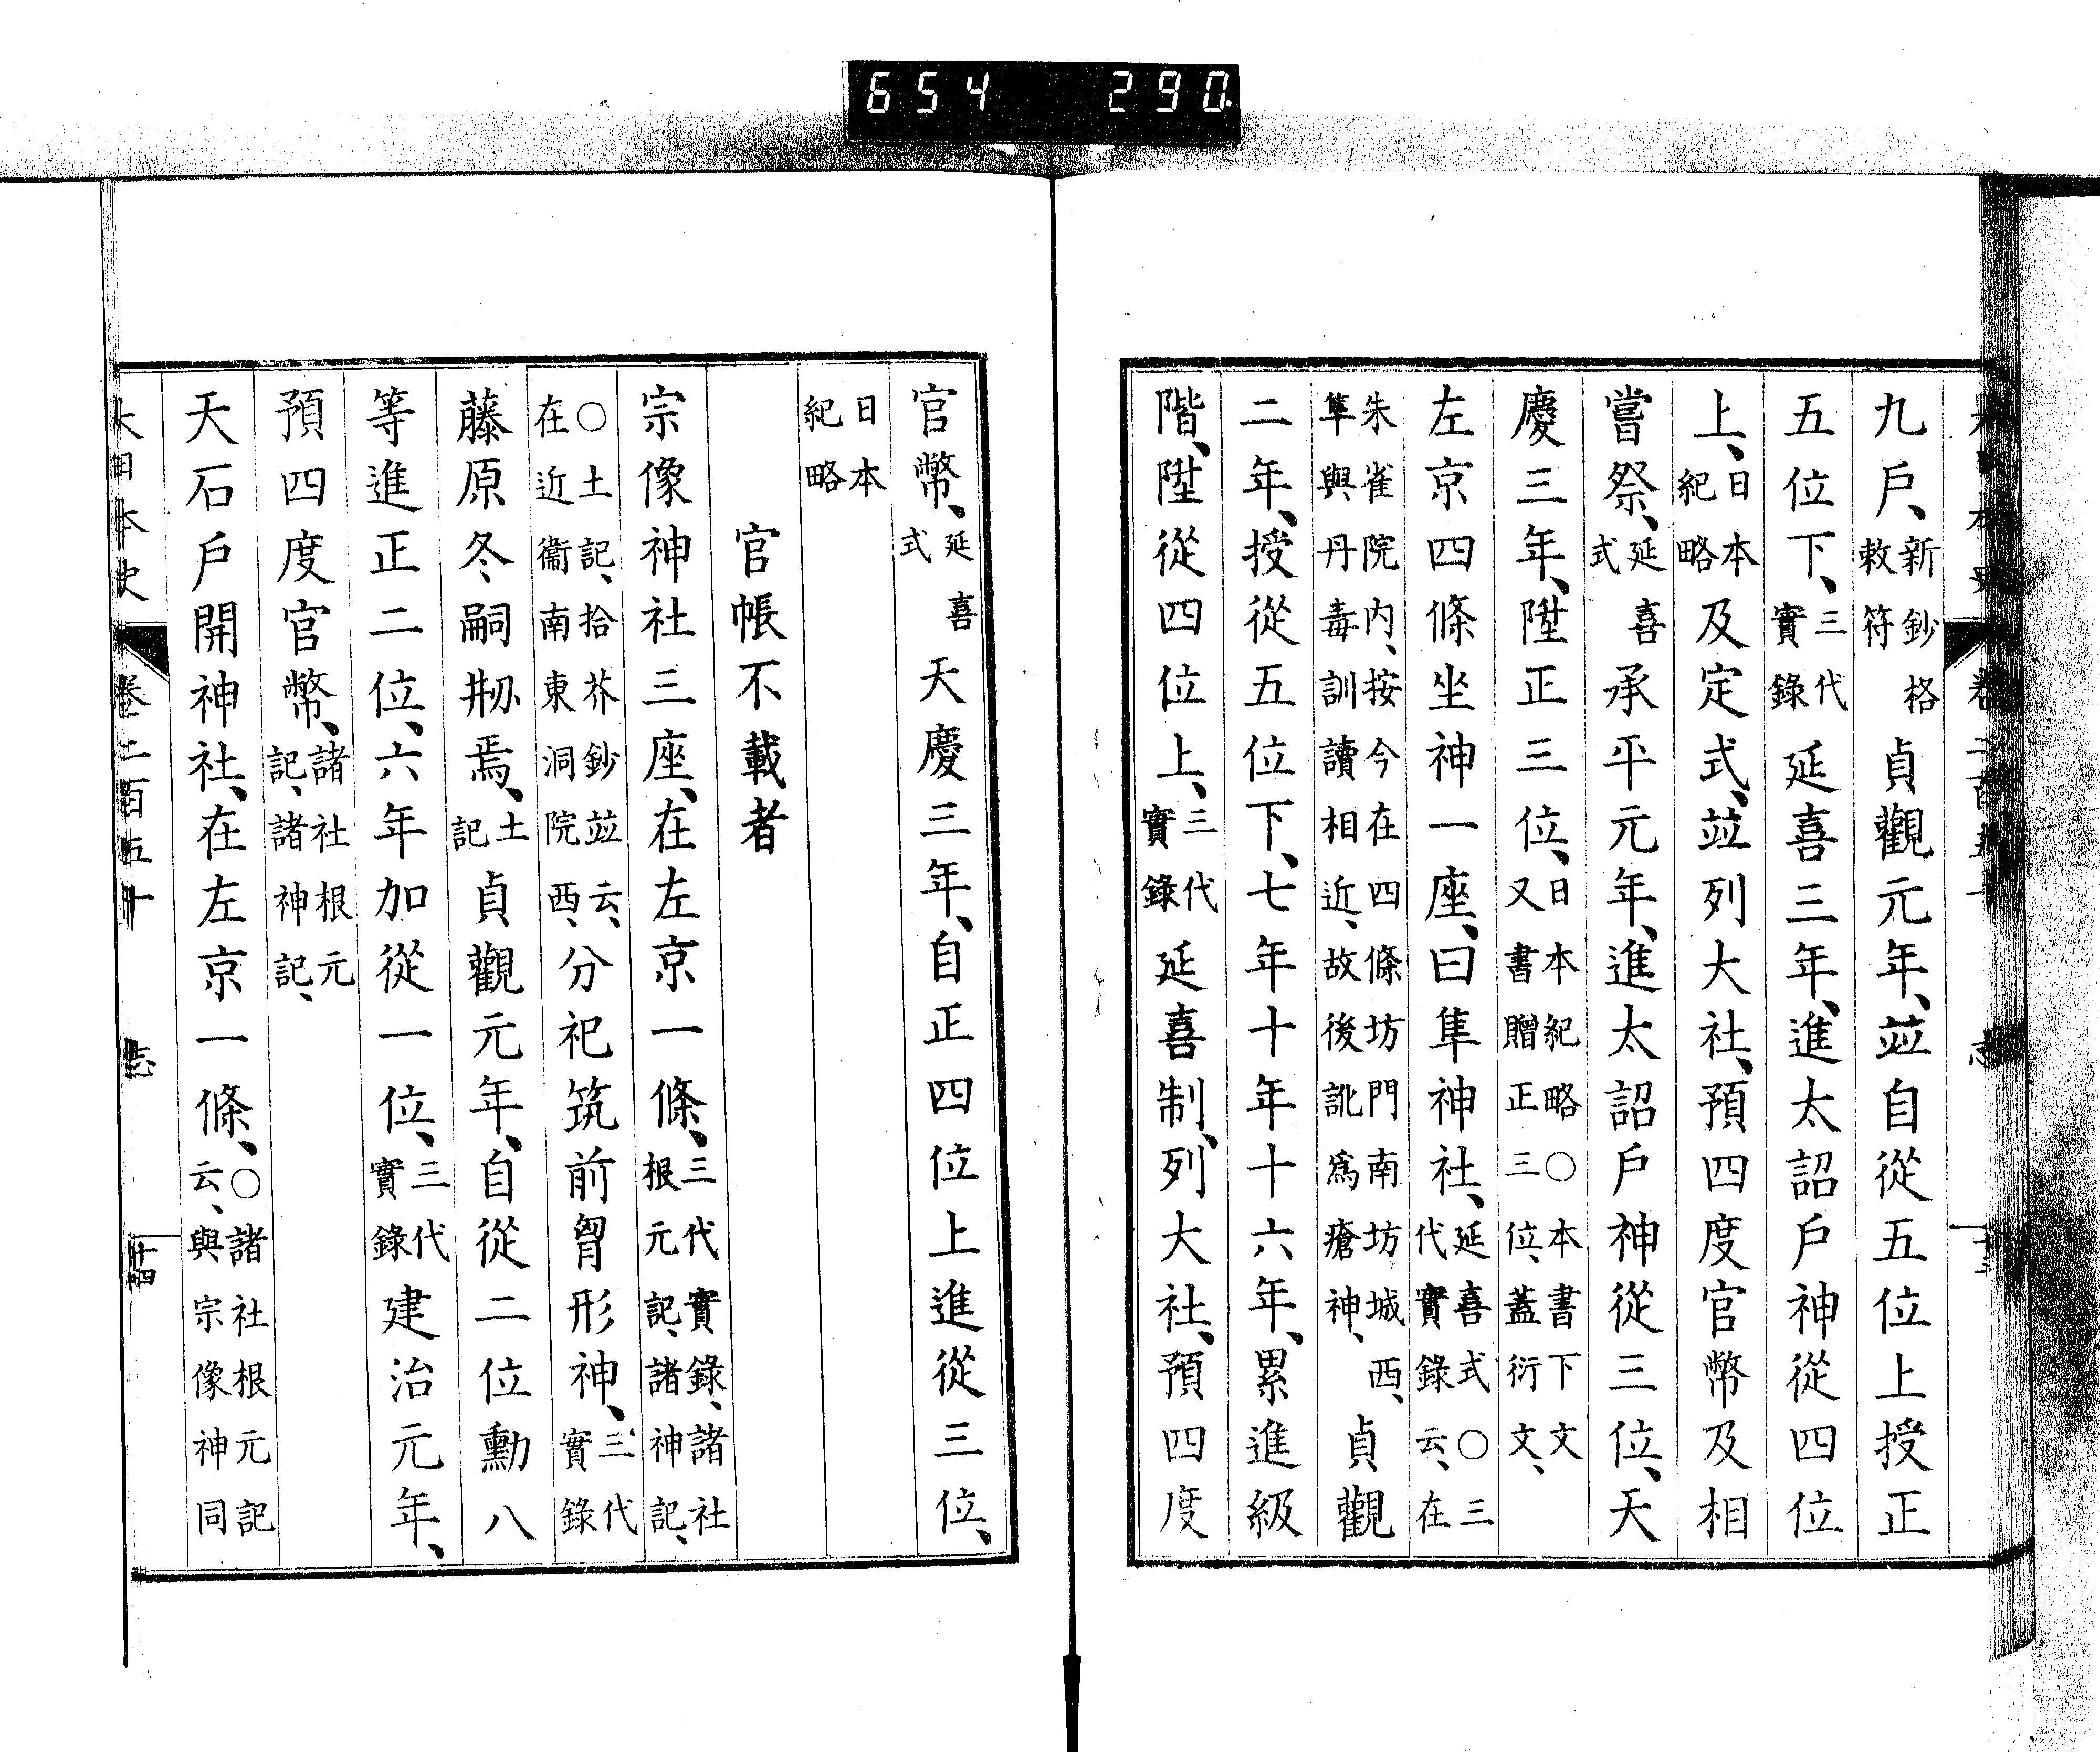 654 290
九戶、新鈔格敕符貞觀元年、竝自從五位上授正
五位下、三代實錄延喜三年、進太詔戶神從四位
上、日本紀略及定式、竝列大社、預四度官幣及相
嘗祭、延喜式承平元年、進太詔戶神從三位、天
慶三年、陞正三位、日本紀略○本書下文又書贈正三位、蓋衍文、
左京四條坐神一座、曰隼神社、延喜式○三代實錄云、在
朱雀院內、按今在四條坊門南坊城西、隼與丹毒訓讀相近、故後訛爲瘡神、貞觀
二年、授從五位下、七年十年十六年、累進級
階、陞從四位上、三代實錄延喜制、列大社、預四度
官幣、延喜式天慶三年、自正四位上進從三位、
日本紀略
官帳不載者
宗像神社三座、在左京一條、三代實錄、諸社根元記、諸神記、
○土記、拾芥鈔竝云、在近衞南東洞院西、分祀筑前胷形神、三代實錄
藤原冬嗣刱焉、土記貞觀元年、自從二位勳八
等進正二位、六年加從一位、三代實錄建治元年、
預四度官幣、諸社根元記、諸神記、
天石戶開神社、在左京一條、○諸社根元記云、與宗像神同
大日本史 卷二百五十 志 十四